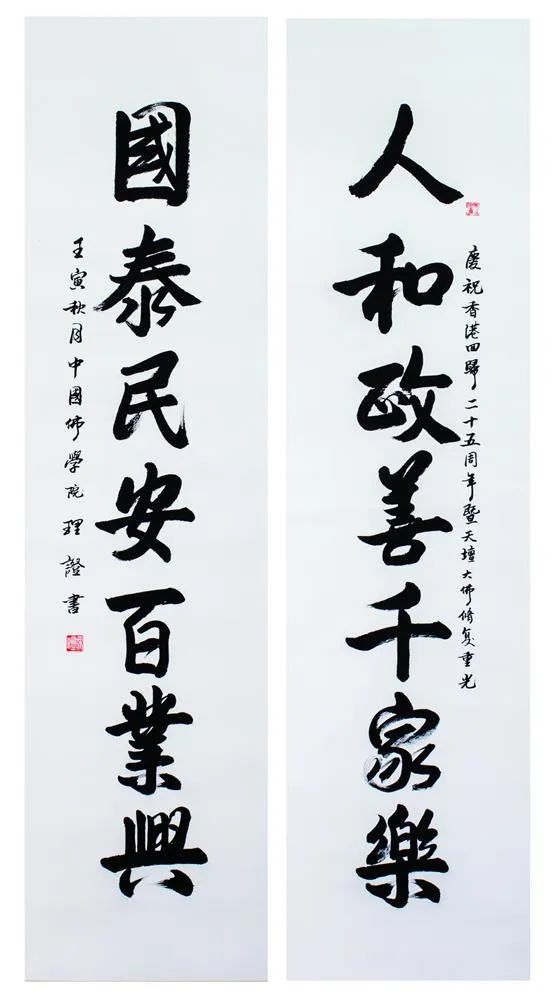 人和政善千家樂
慶祝香港回歸二十五周年暨天壇大佛修復重光
國泰民安百業興
壬寅秋月中國佛學院理證書